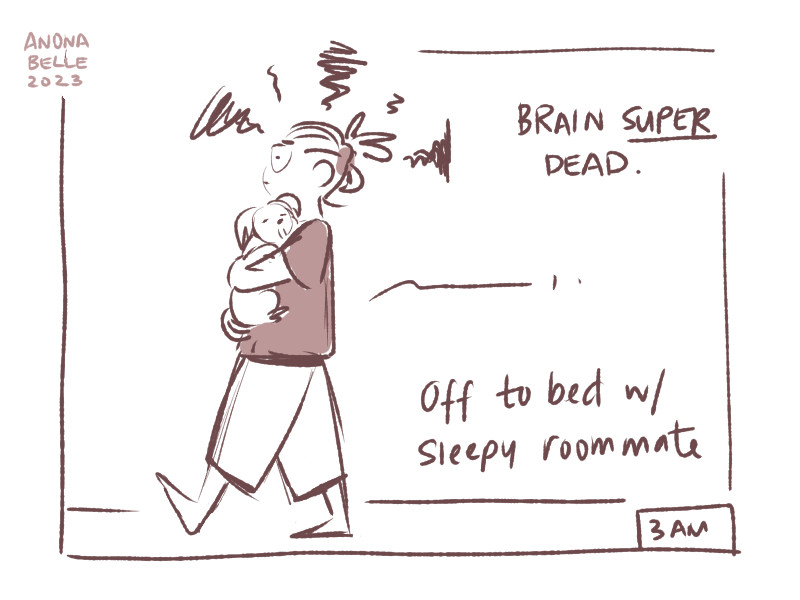 ANONA
BELLE
2023
BRAIN SUPER
DEAD.
Off to bed w/
sleepy roommate
3 AM